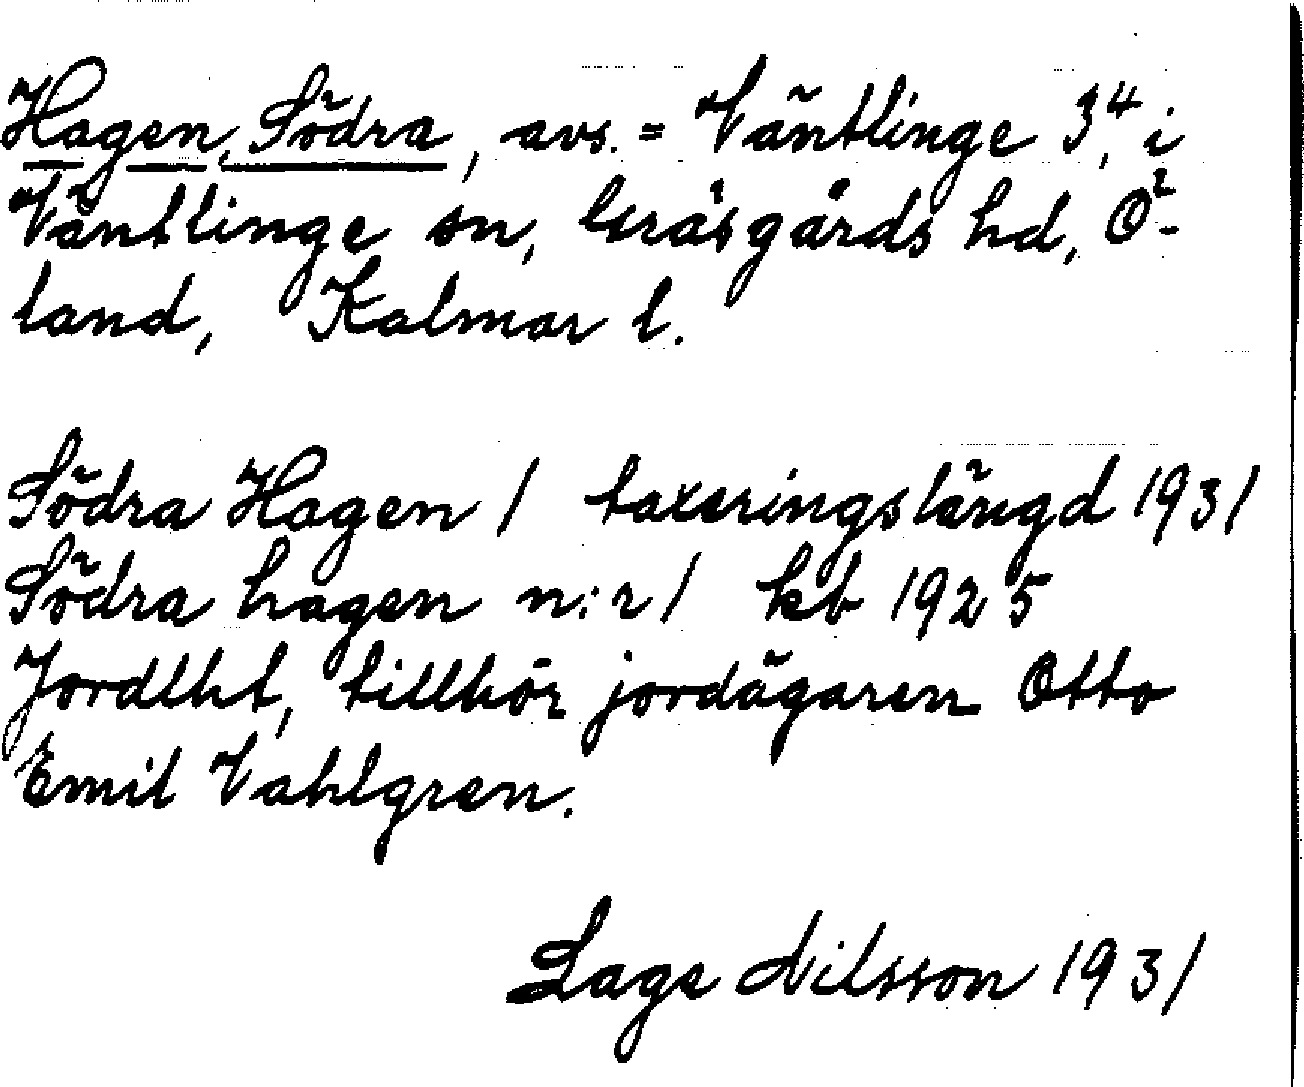 Hagen, Södra, avs. = Väntlinge 3⁴, i
Väntlinge sn, Gräsgårds hd, Ö-
land, Kalmar l.
Södra Hagen 1 taxeringslängd 1931
Södra hagen n:r 1 kb 1925
Jordlht, tillhör jordägaren Otto
Emil Vahlgren.
Lage Nilsson 1931